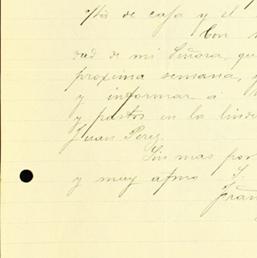 de casa y el
Con
dad de mi Señora, que
proxima semana, y
y informar a
y pastos en la linde
Juan Perez.
Sin mas por
y muy afmo S.
Fran